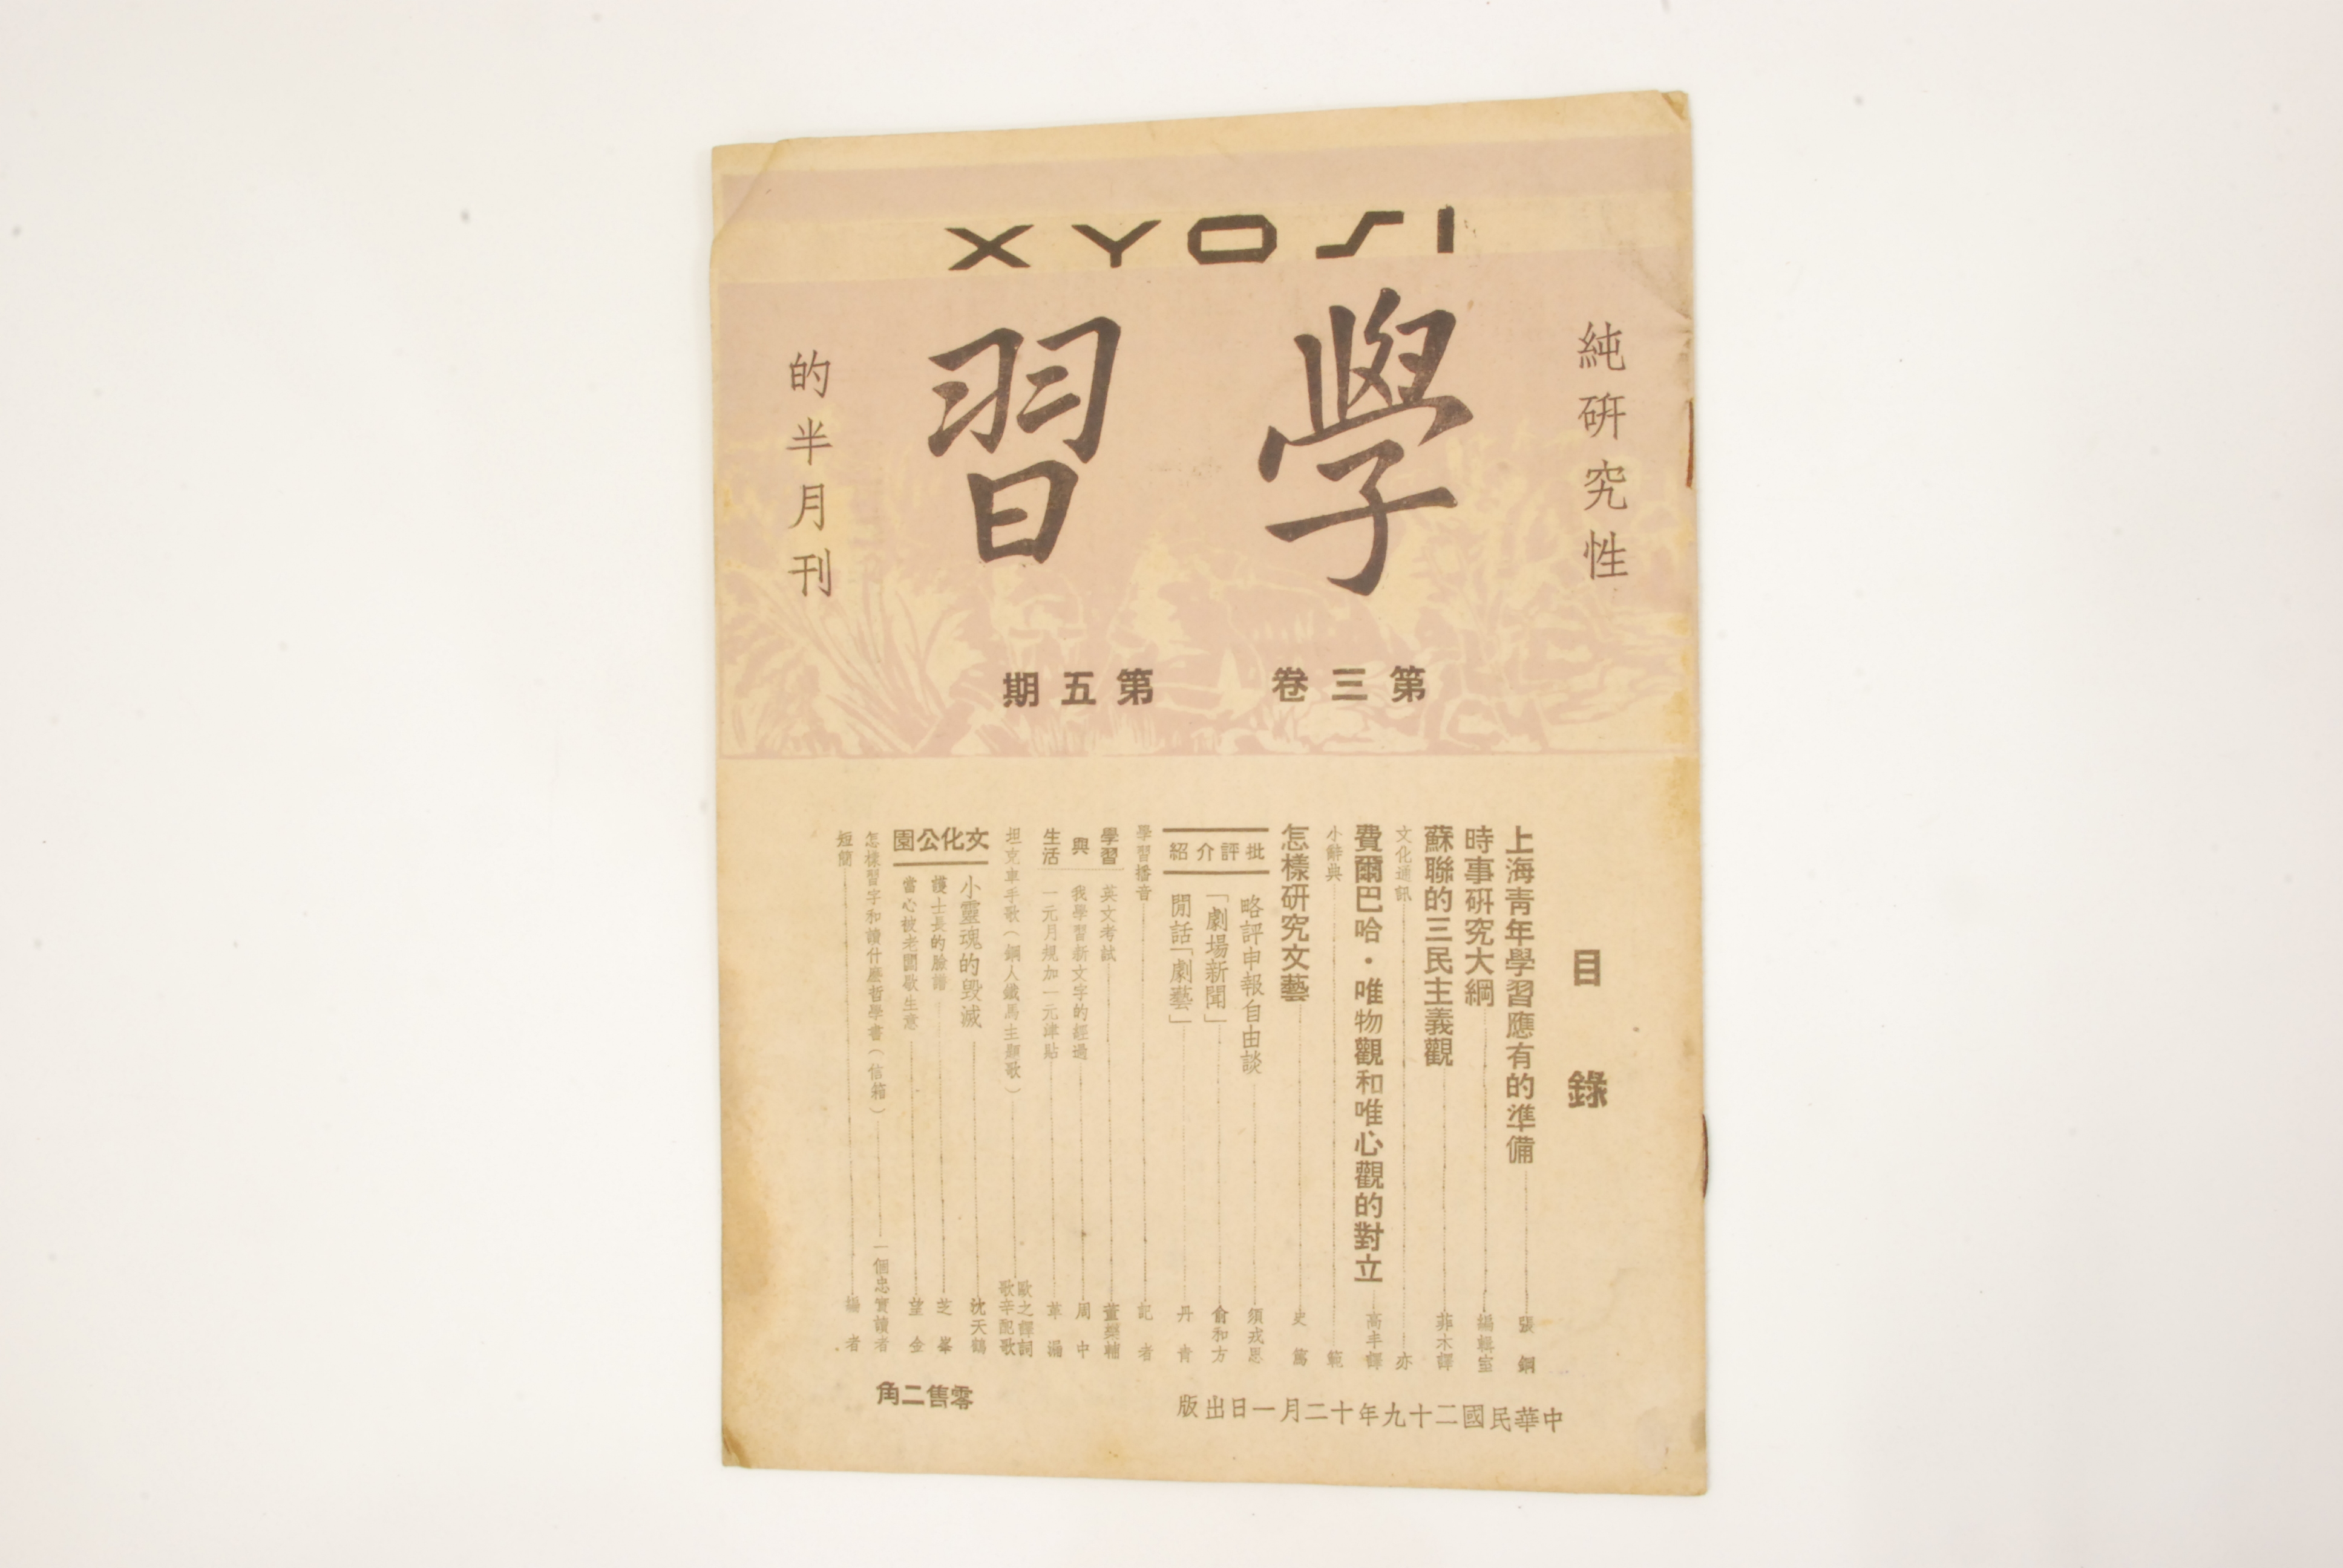 XYOSI
學習
純硏究性
的半月刊
第三卷 第五期
目錄
上海青年學習應有的準備 張鋼
時事硏究大綱 編輯室
蘇聯的三民主義觀 菲木譯
文化通訊 亦
費爾巴哈・唯物觀和唯心觀的對立 高丰譯
小辭典 範
怎樣研究文藝 史篤
批評介紹
略評申報自由談 須戎思
「劇場新聞」 俞和方
閒話「劇藝」 丹青
學習播音 記者
學習與生活
英文考試 董樂輔
我學習新文字的經過 周中
一元月規加一元津貼 革
坦克車手歌（鋼人鐵馬主題歌） 歐之譯詞 歌辛配歌
文化公園
小靈魂的毀滅 沈天鶴
護士長的臉譜 芝峯
當心被老闆歇生意 望金
怎樣習字和讀什麽哲學書（信箱） 一個忠實讀者
短簡 編者
中華民國二十九年十二月一日出版
零售二角